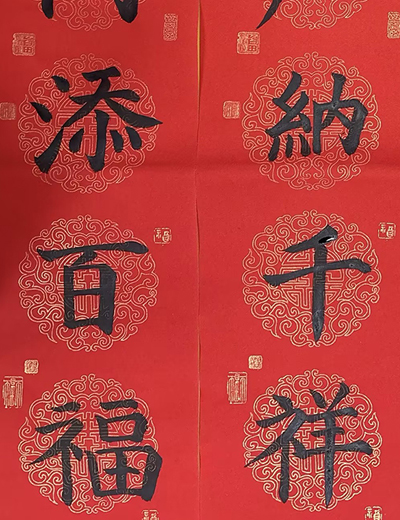 納千祥
添百福